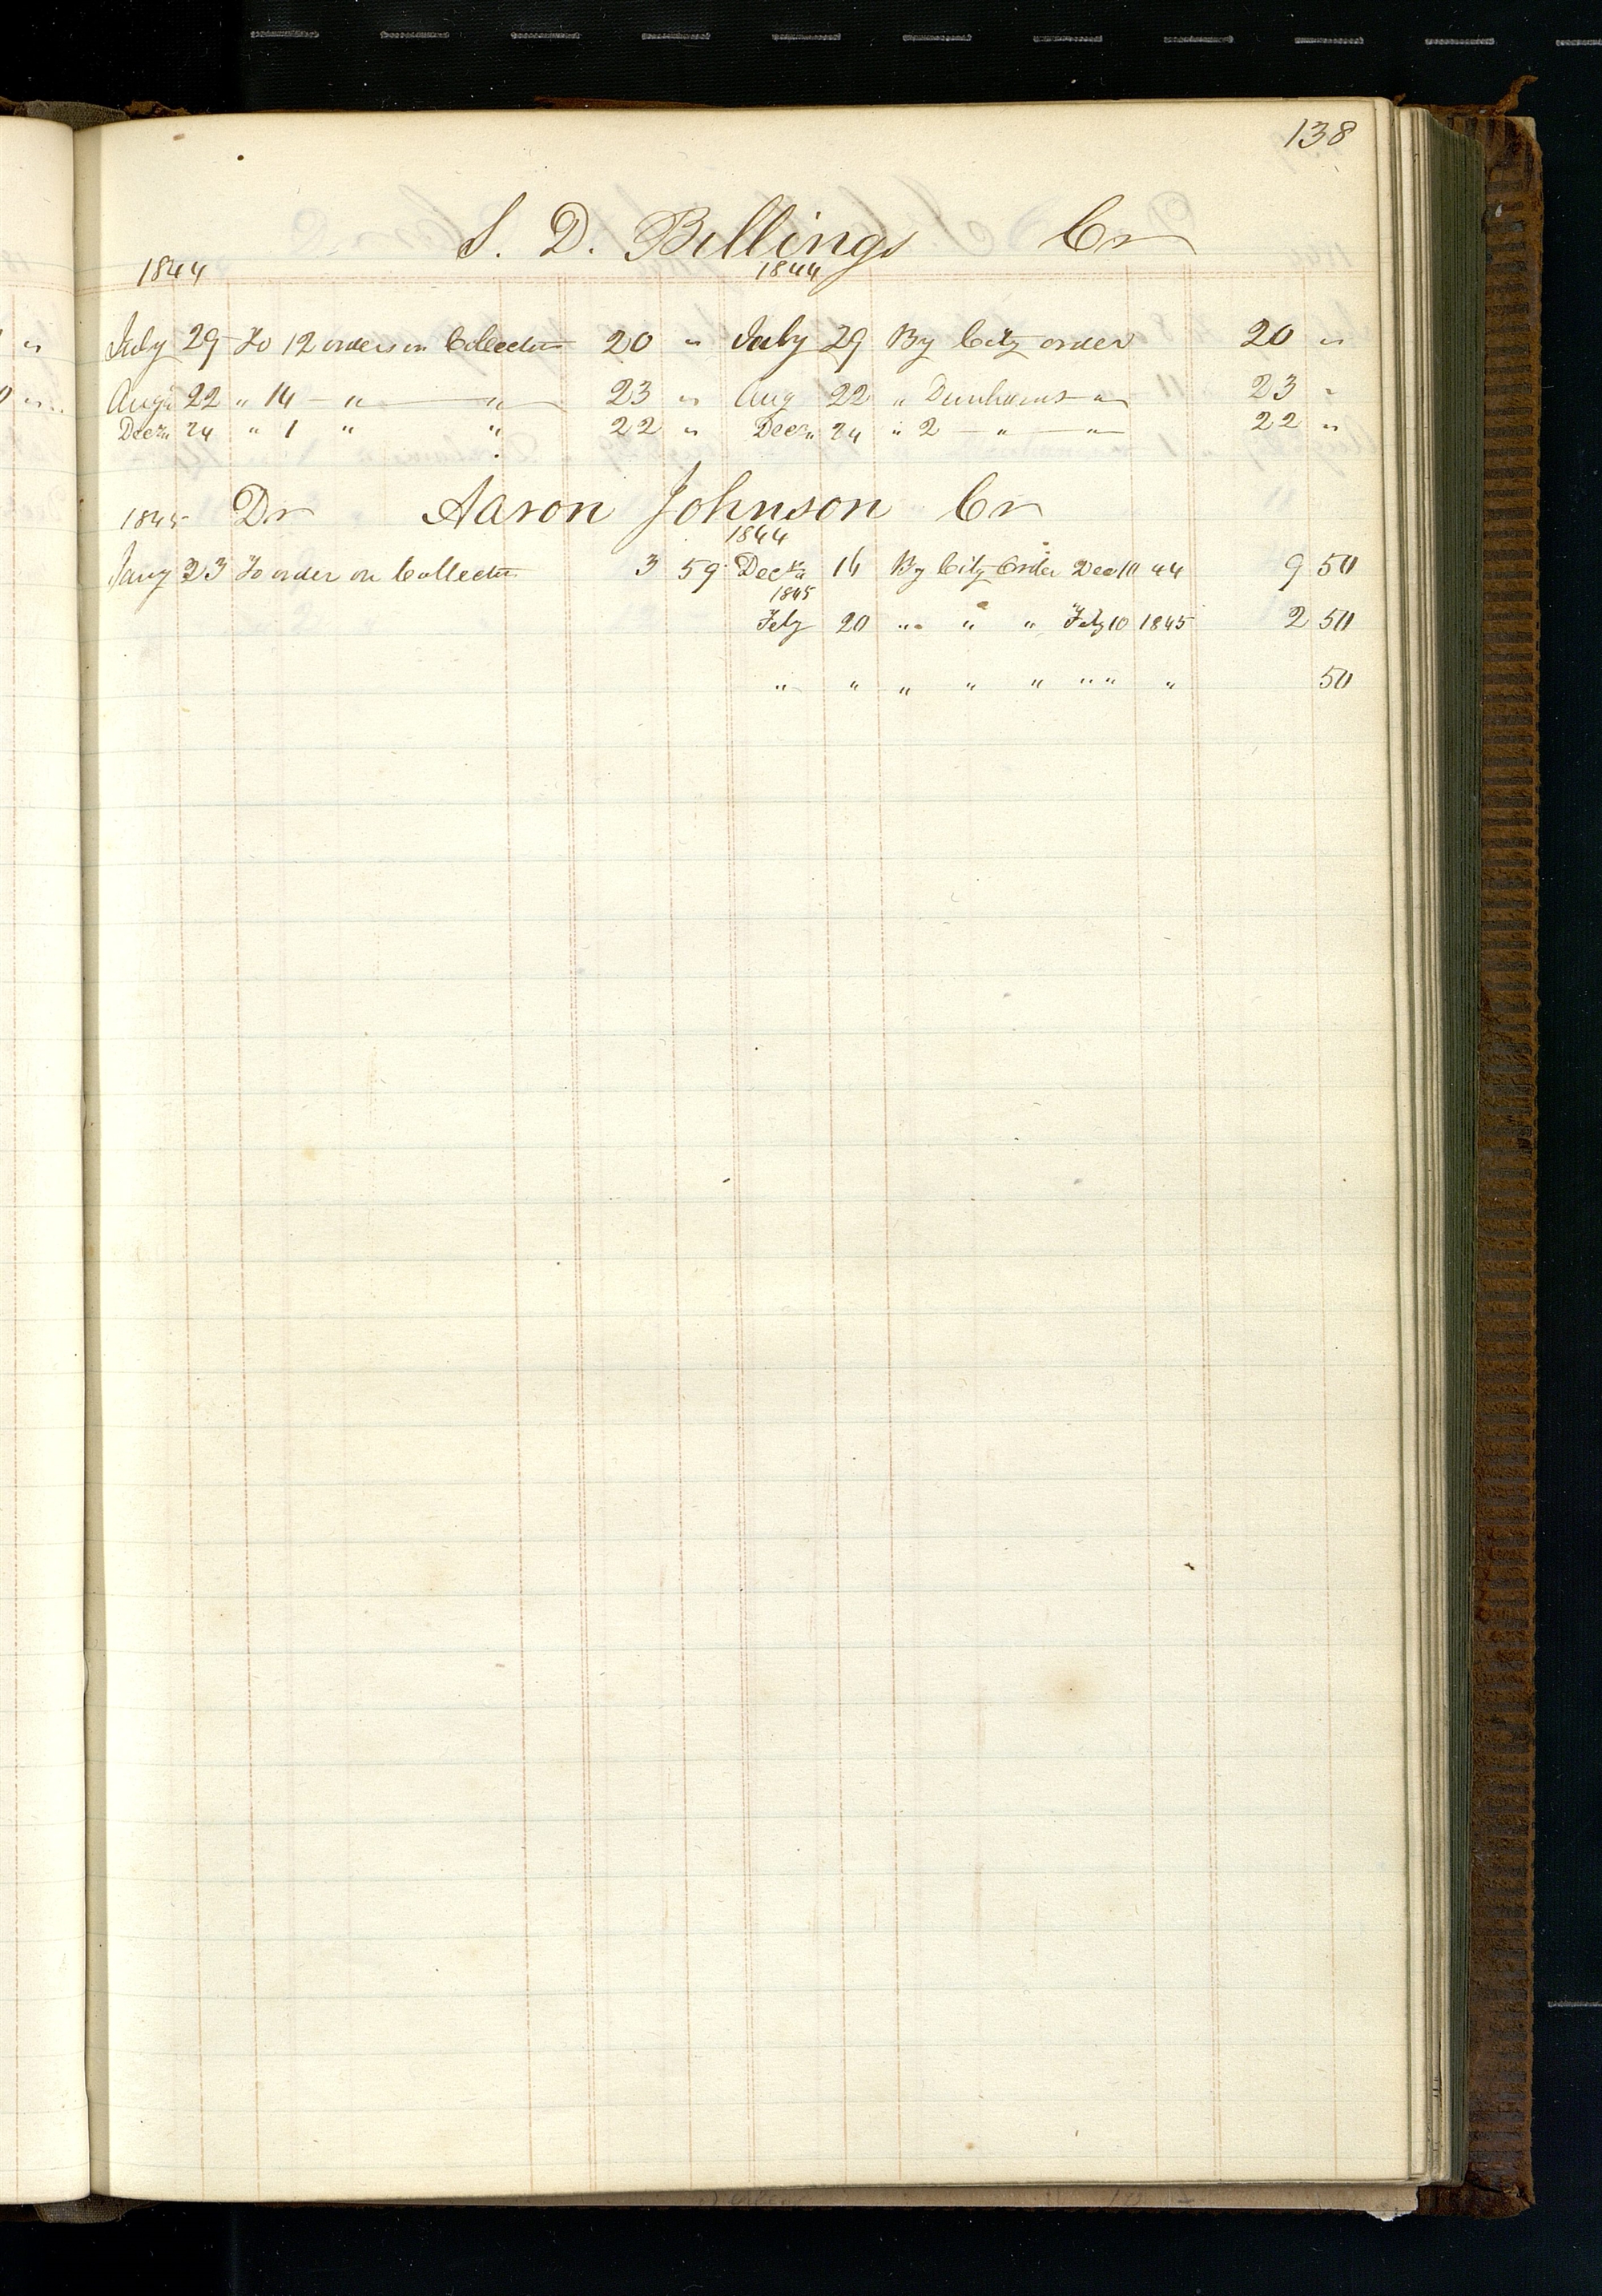 138
S. D. Billings Cr
1844 1844
July 29 To 12 orders on Collector 20 " July 29 By City order 20 "
Aug 22 " 14 " " 23 " Aug 22 " Dunhams " 23 "
Decr 24 " 1 " " 22 " Decr 24 " 2 " " 22 "
1845 Dr Aaron Johnson Cr
1844
Jany 23 To order on Collector 3 59 Decr 16 By City Order Dec 10 44 9 50
1845
Feby 20 " " " Feby 10 1845 2 50
" " " " " " " " 50